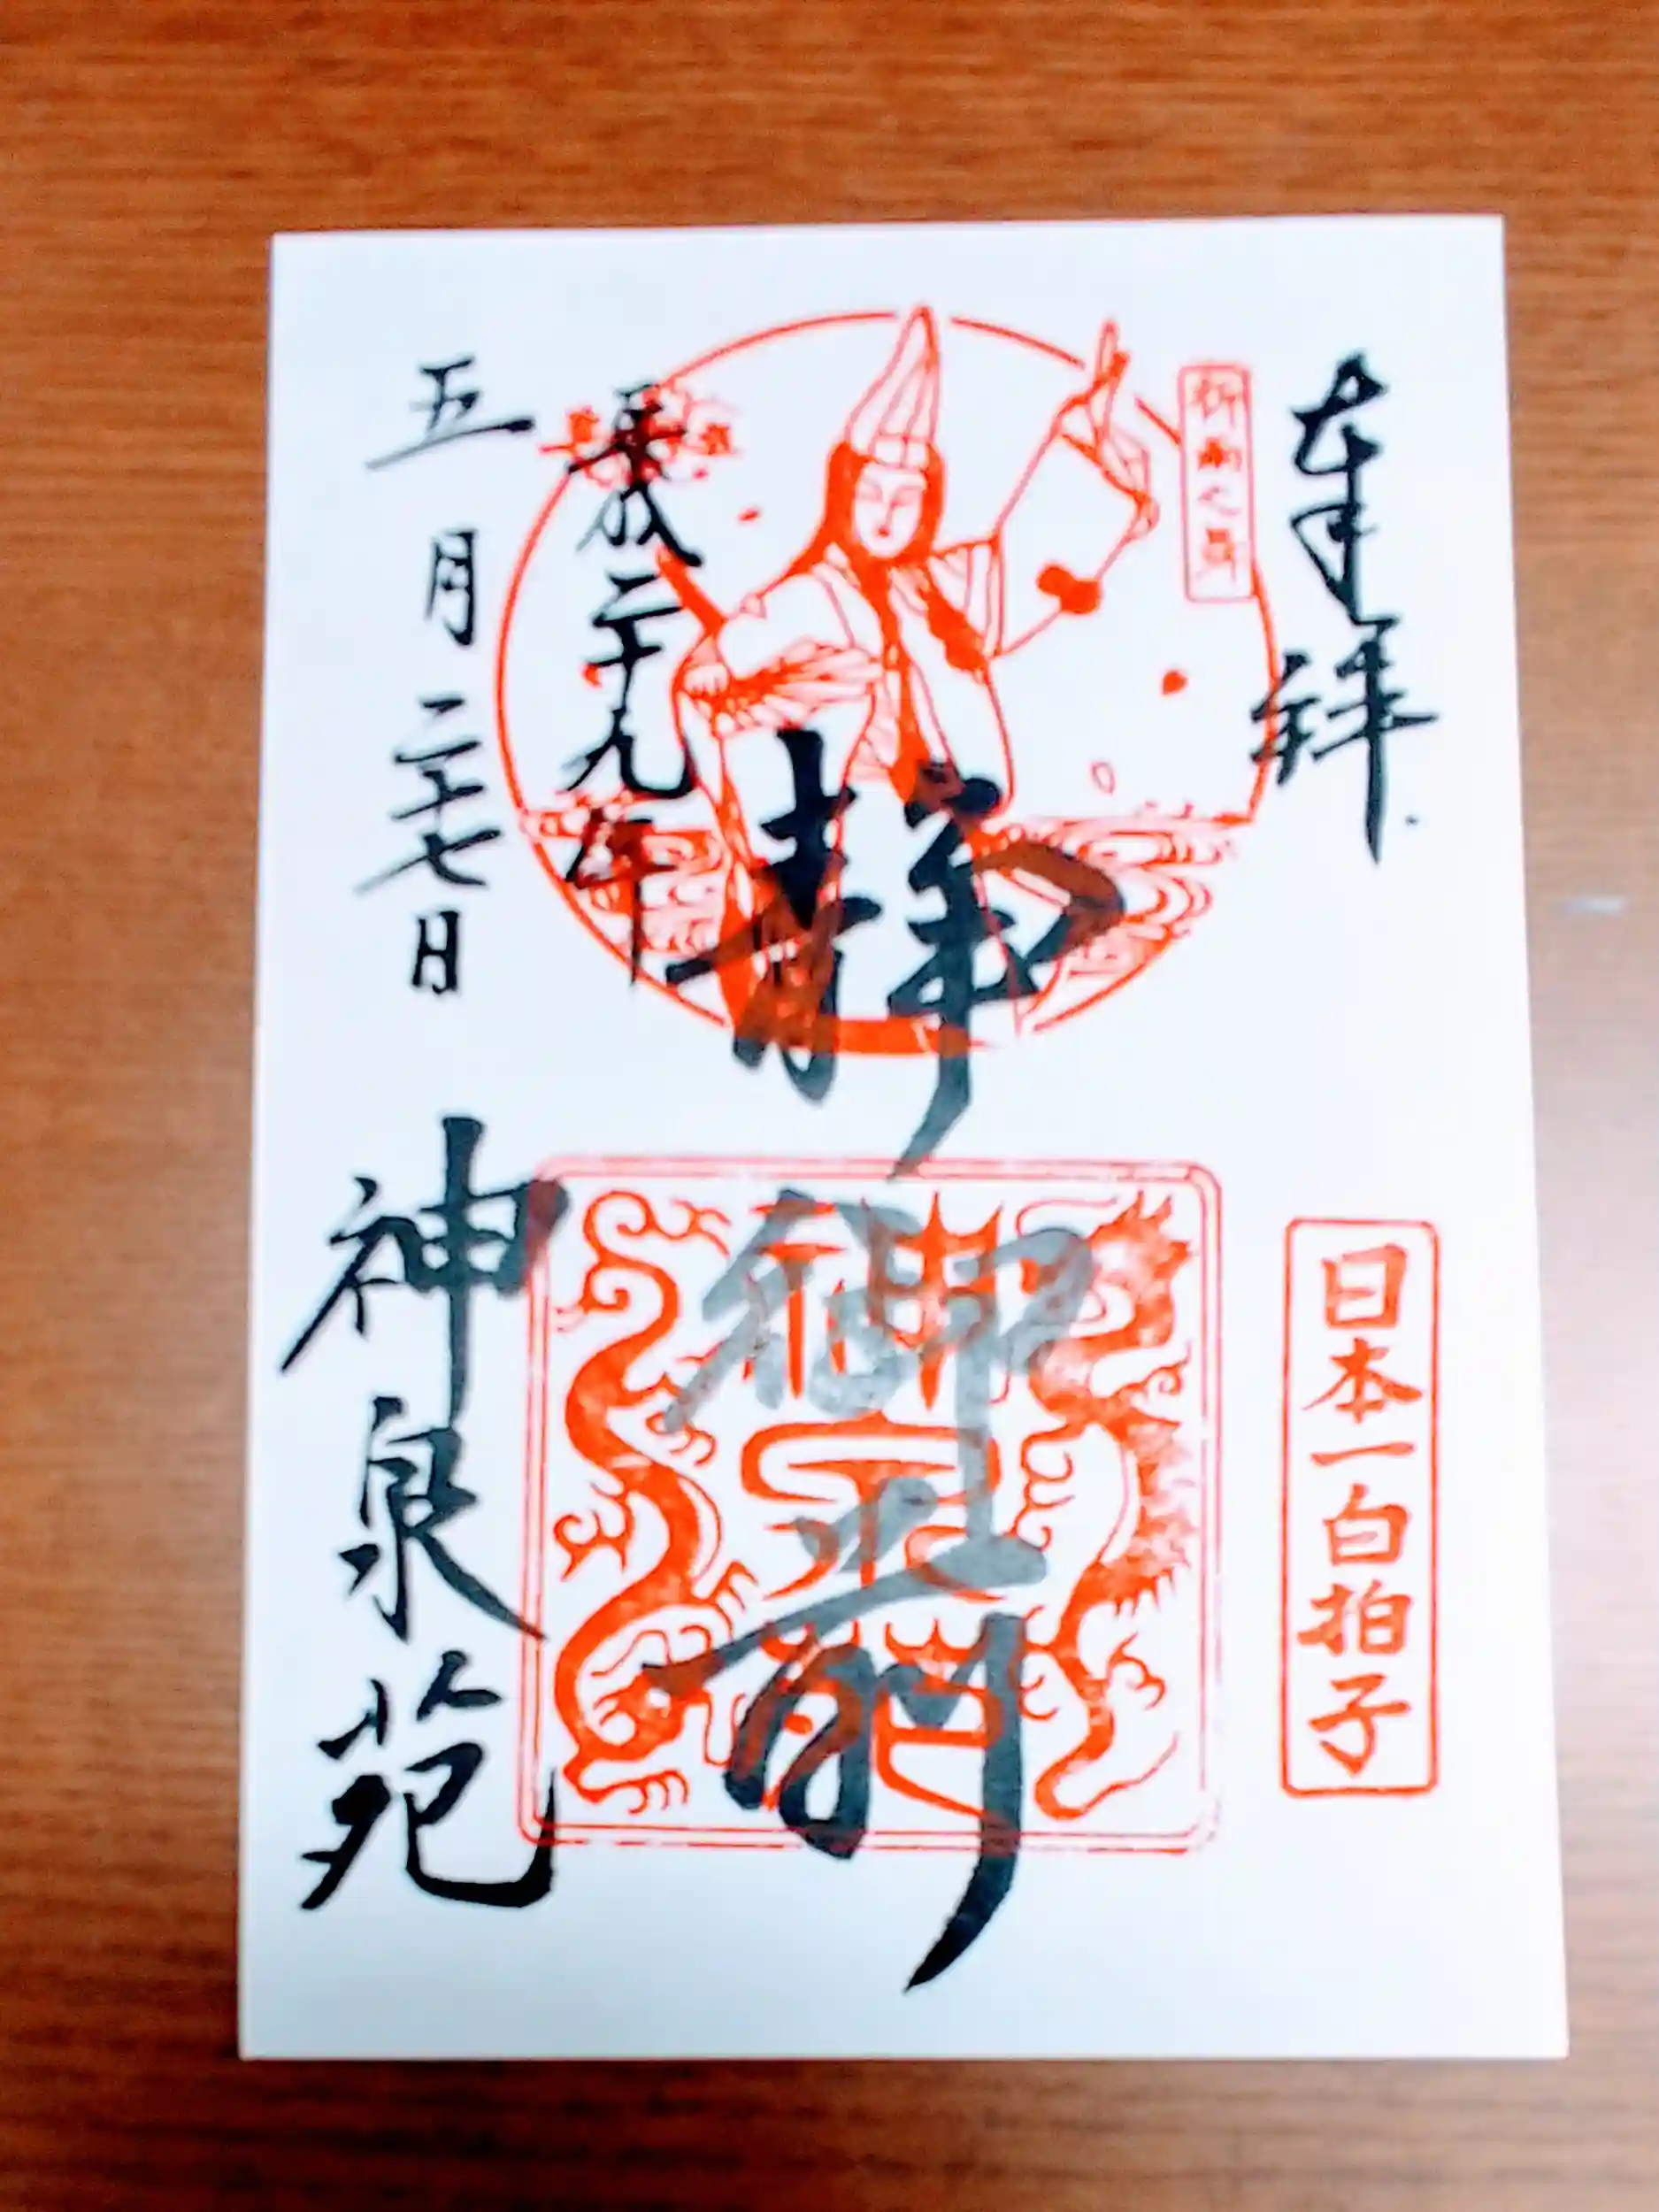 奉拝
祈雨之舞
日本一白拍子
静御前
神泉苑
平成二十九年
五月二十七日
神泉苑